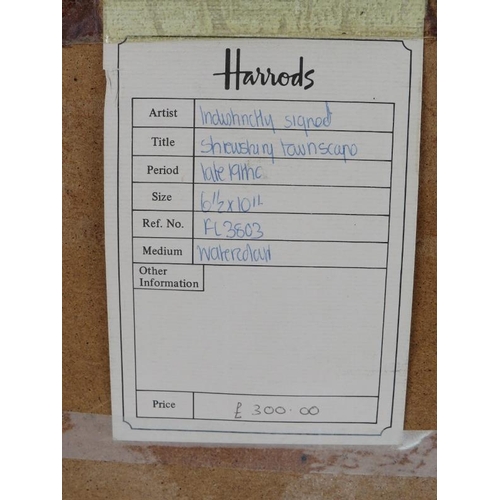 Harrods
Artist Indistinctly signed
Title Shrewsbury townscape
Period late 19thc
Size 6½x10"
Ref. No. FL3803
Medium watercolour
Other
Information
Price £300.00